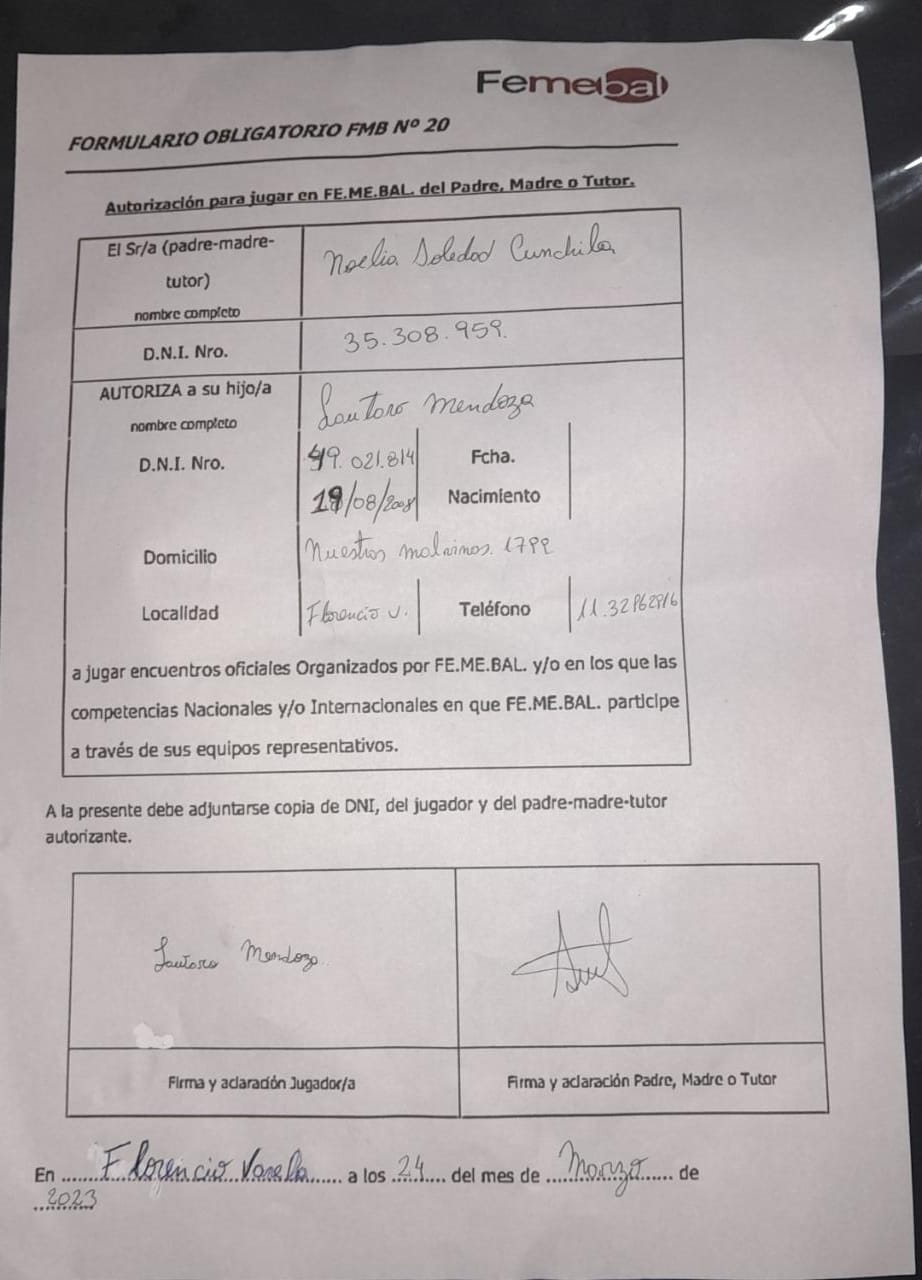 Femebal
FORMULARIO OBLIGATORIO FMB Nº 20
Autorización para jugar en FE.ME.BAL. del Padre, Madre o Tutor.
El Sr/a (padre-madre-
tutor)
nombre completo
Noelia Soledad Cunchila
D.N.I. Nro.
35.308.959.
AUTORIZA a su hijo/a
nombre completo
Lautaro Mendoza
D.N.I. Nro.
49.021.814
Fcha.
Nacimiento
19/08/2008
Domicilio
Nuestras malvinas. 1799
Localidad
Florencio V.
Teléfono
a jugar encuentros oficiales Organizados por FE.ME.BAL. y/o en los que las
competencias Nacionales y/o Internacionales en que FE.ME.BAL. participe
a través de sus equipos representativos.
A la presente debe adjuntarse copia de DNI, del jugador y del padre-madre-tutor
autorizante.
Lautaro Mendoza
Firma y aclaración Jugador/a
Firma y aclaración Padre, Madre o Tutor
En ....... Florencio Varela ...... a los 24 .... del mes de ... Marzo ...... de
2023